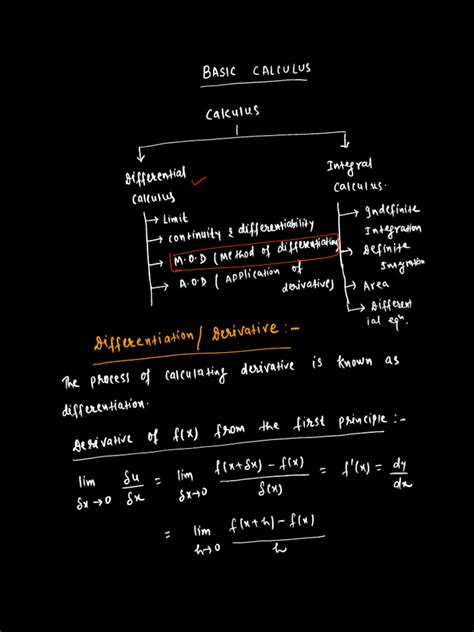 BASIC CALCULUS
Calculus
Differential
Calculus
→ Limit
→ Continuity & differentiability
→ M.O.D (Method of differentiation
→ A.O.D (Application of
derivative)
Integral
Calculus.
→ Indefinite
Integration
→ Definite
Integration
→ Area
→ Different
ial eqⁿ.
Differentiation/ Derivative :-
The process of calculating derivative is known as
differentiation.
Derivative of f(x) from the first principle :-
lim δx→0 δu/δx = lim δx→0 (f(x+δx) - f(x))/δ(x) = f'(x) = dy/dx
= lim h→0 (f(x+h) - f(x))/h